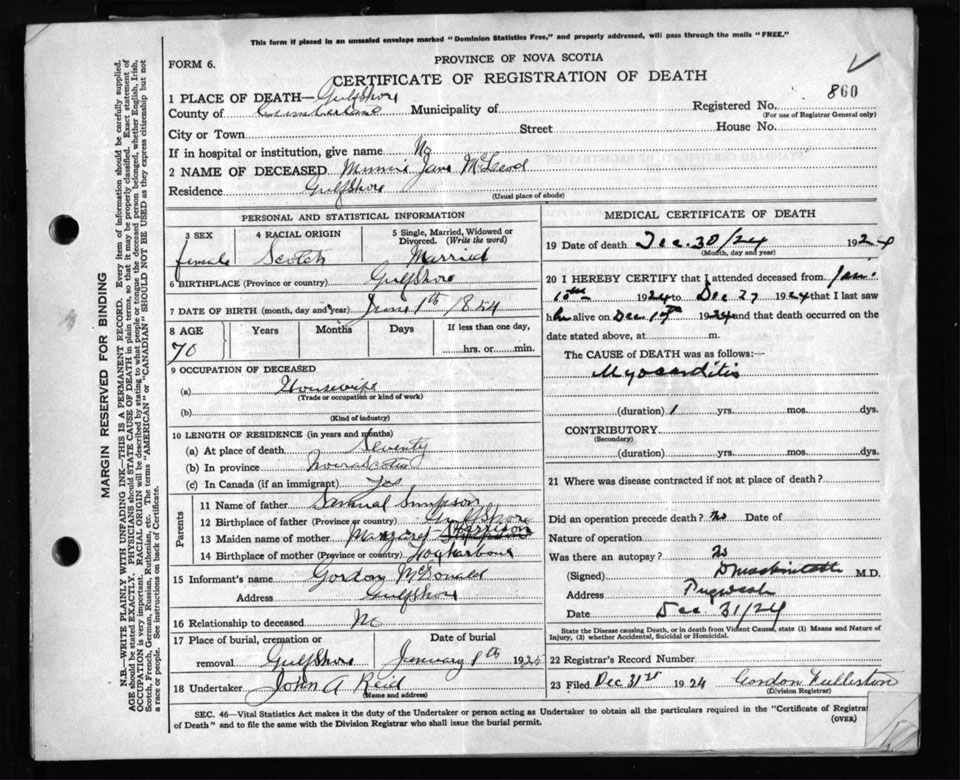 This form if placed in an unsealed envelope marked "Dominion Statistics Free," and properly addressed, will pass through the mails "FREE."
PROVINCE OF NOVA SCOTIA
FORM 6.
CERTIFICATE OF REGISTRATION OF DEATH
860
1 PLACE OF DEATH— Gulfshore
County of Cumberland Municipality of
Registered No.
(For use of Registrar General only)
City or Town Street House No.
If in hospital or institution, give name No
2 NAME OF DECEASED Minnie Jane McLeod
Residence Gulfshore
(Usual place of abode)
MARGIN RESERVED FOR BINDING
N.B.—WRITE PLAINLY WITH UNFADING INK—THIS IS A PERMANENT RECORD. Every item of information should be carefully supplied.
AGE should be stated EXACTLY. PHYSICIANS should STATE CAUSE OF DEATH in plain terms, so that it may be properly classified. Exact statement of
OCCUPATION is very important. RACIAL ORIGIN will be described by stating to what people or tongue the deceased person belonged, whether English, Irish,
Scotch, French, German, Russian, Ruthenian, etc. The terms "AMERICAN" or "CANADIAN" SHOULD NOT BE USED as they express citizenship but not
a race or people. See instructions on back of Certificate.
PERSONAL AND STATISTICAL INFORMATION
3 SEX
female
4 RACIAL ORIGIN
Scotch
5 Single, Married, Widowed or
Divorced. (Write the word)
Married
6 BIRTHPLACE (Province or country) Gulfshore
7 DATE OF BIRTH (month, day and year) June 1th 1854
8 AGE Years Months Days If less than one day,
70
hrs. or min.
9 OCCUPATION OF DECEASED
(a) Housewife
(Trade or occupation or kind of work)
(b)
(Kind of industry)
10 LENGTH OF RESIDENCE (in years and months)
(a) At place of death Seventy
(b) In province Nova Scotia
(c) In Canada (if an immigrant) Yes
Parents
11 Name of father Samual Simpson
12 Birthplace of father (Province or country) Gulfshore
13 Maiden name of mother Margaret
14 Birthplace of mother (Province or country) Foxharbour
15 Informant's name Gordon McDonald
Address Gulfshore
16 Relationship to deceased No
17 Place of burial, cremation or
removal Gulfshore
Date of burial
January 1th 1925
18 Undertaker John A Reid
(Name and address)
MEDICAL CERTIFICATE OF DEATH
19 Date of death Dec. 30/24 1924
(Month, day and year)
20 I HEREBY CERTIFY that I attended deceased from Jan.
10th 1924 to Dec 27 1924 that I last saw
her alive on Dec 1924 and that death occurred on the
date stated above, at m.
The CAUSE OF DEATH was as follows:—
Myocarditis
(duration) 1 yrs. mos. dys.
CONTRIBUTORY
(Secondary)
(duration) yrs. mos. dys.
21 Where was disease contracted if not at place of death?
Did an operation precede death? No Date of
Nature of operation
Was there an autopsy? No
(Signed) D Mackintosh M.D.
Address Pugwash
Date Dec 31/24
State the Disease causing Death, or in death from Violent Cause, state (1) Means and Nature of
Injury, (2) whether Accidental, Suicidal or Homicidal.
22 Registrar's Record Number
23 Filed Dec 31st 1924 Gordon Fullerton
(Division Registrar)
SEC. 46—Vital Statistics Act makes it the duty of the Undertaker or person acting as Undertaker to obtain all the particulars required in the "Certificate of Registrat
of Death" and to file the same with the Division Registrar who shall issue the burial permit.
(OVER)